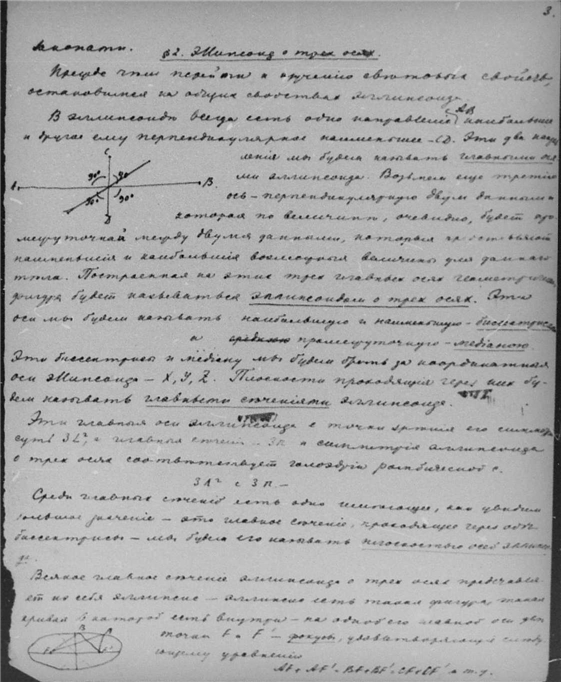 3.
§2. Эллипсоид о трех осях.
Прежде чем перейти к изучению световых свойств,
остановимся на общих свойствах эллипсоида.
В эллипсоиде всегда есть одно направление AB наибольшее
и другое ему перпендикулярное наименьшее – CD. Эти два направ
ления мы будем называть главными ося
ми эллипсоида. Возьмем еще третью
ось – перпендикулярную двум данным и
которая по величине, очевидно, будет про
межуточной между двумя данными, которые представляют
наименьшия и наибольшия возможныя величины для даннаго
тела. Построенная на этих трех главных осях геометрическая
фигура будет называться эллипсоидом о трех осях. Эти
оси мы будем называть наибольшую и наименьшую – биссектрисы
а промежуточную – медианою
Эти биссектрисы и медиану мы будем брать за координатныя
оси эллипсоида – X, Y, Z. Плоскости проходящия через них бу
дем называть главными сечениями эллипсоида.
Эти главныя оси эллипсоида с точки зрения его симметр
суть 3L², а главныя сечения – 3П и симметрия эллипсоида
о трех осях соответствует голоэдрии ромбической с.
3Λ² с 3П –
Среди главных сечений есть одно имеющее, как увидим
большое значение – это главное сечение, проходящее через обе
биссектрисы – мы будем его называть плоскостью осей эллипсои
да.
Всякое главное сечение эллипсоида о трех осях представля
ет из себя эллипсис – эллипсис есть такая фигура, такая
кривая в которой есть внутри на одной его главной оси две
точки F и F' – фокусы, удовлетворяющия следу
ющему уравнению
AF + AF' = BF + BF' = CF + CF' и т.д.
C
A
B
D
90°
90
90°
90